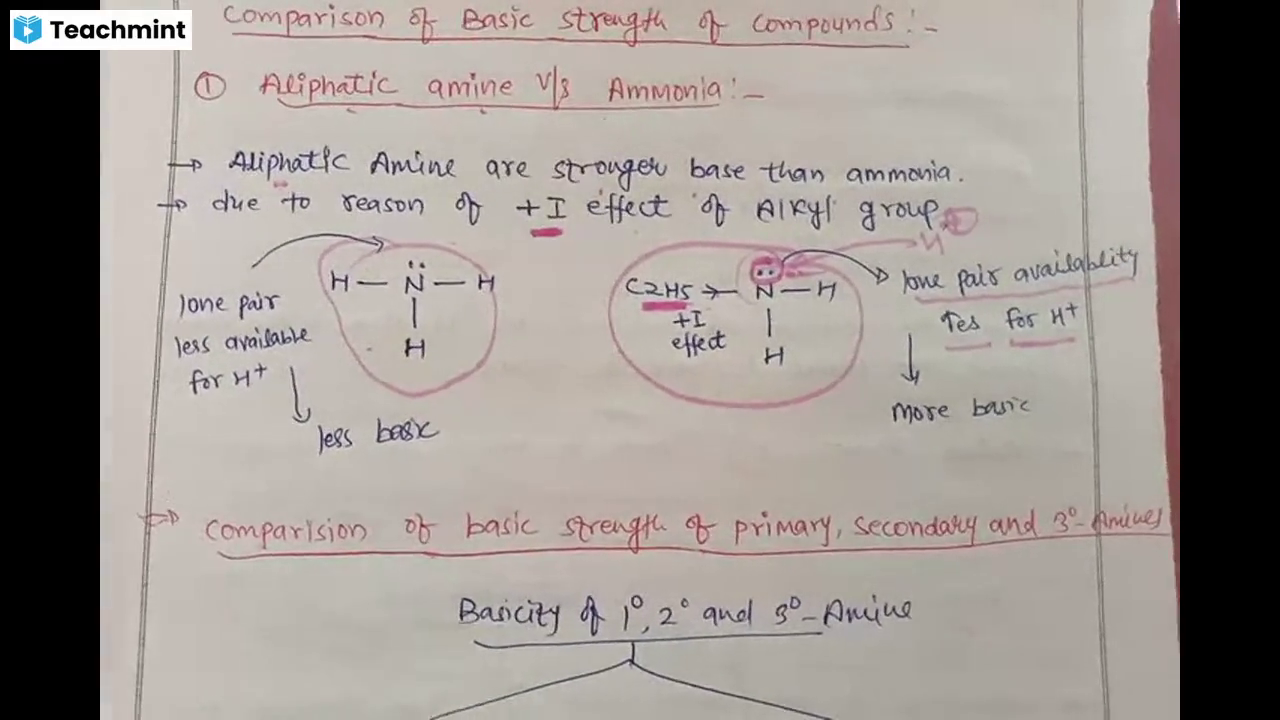 Teachmint
Comparison of Basic strength of compounds:-
① Aliphatic amine v/s Ammonia:-
→ Aliphatic Amine are stronger base than ammonia.
→ due to reason of +I effect of Alkyl group
H+
lone pair
less available
for H+
less basic
H — N — H
H
C2H5 → N — H
+I
effect
H
lone pair availablity
Yes for H+
More basic
⇒ comparision of basic strength of primary, secondary and 3°-Amines
Basicity of 1°, 2° and 3°-Amine